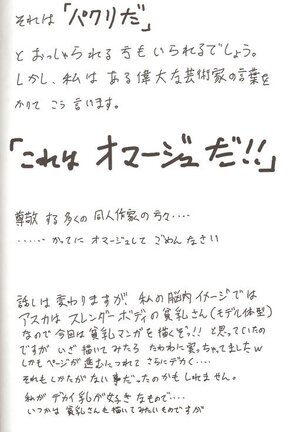 それは「パクリだ」
とおっしゃられる方もいられるでしょう。
しかし、私は ある偉大な芸術家の言葉を
かりて こう言います。
「これは オマージュ だ!!」
尊敬 する 多くの 同人作家の 方々‥‥
‥‥‥ かってに オマージュして ごめん なさい
話しは変わりますが 私の脳内イメージでは
アスカは スレンダーボディの貧乳さん(モデル体型)
なので今回は貧乳マンガを描くぞっ!! と思っていたの
ですが いざ 描いてみたら たわわに実っちゃてましたw
しかもページが進むにつれて さらにデカく‥‥
それもしかたがない事だったのかもしれません。
私が デカイ乳が好き なもので‥‥
いつかは 貧乳さんも描いてみたいものですが